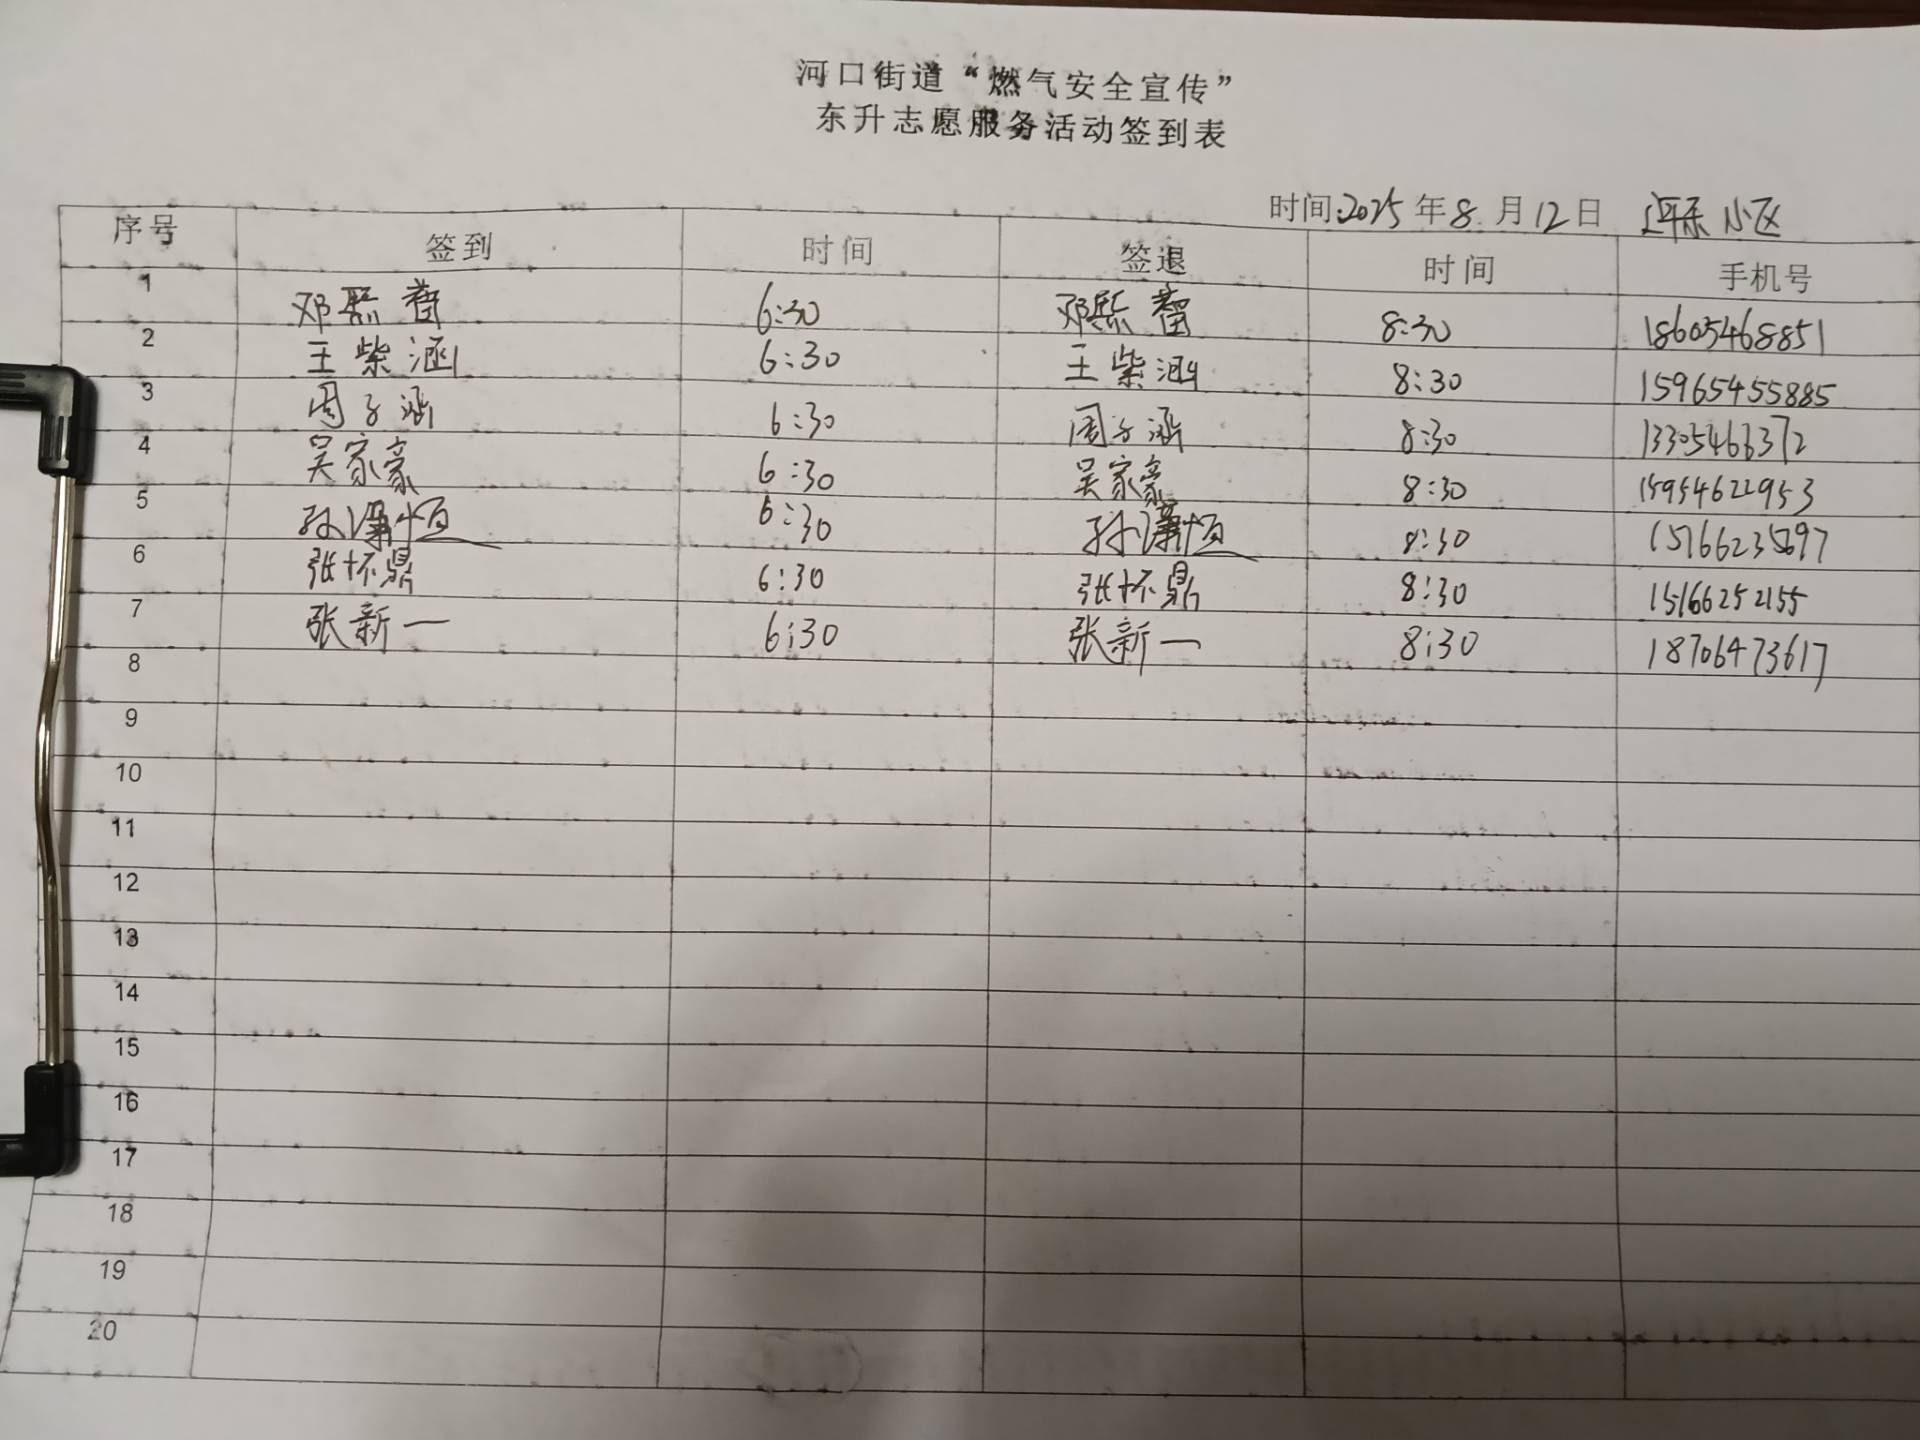 河口街道“燃气安全宣传”
东升志愿服务活动签到表
时间:2025年8月12日 小区
序号 签到 时间 签退 时间 手机号
1 邓熙 6:30 邓熙 8:30 18605468851
2 王紫涵 6:30 王紫涵 8:30 15965455885
3 周子涵 6:30 周子涵 8:30 13305466372
4 吴家豪 6:30 吴家豪 8:30 15954622953
5 孙潇恒 6:30 孙潇恒 8:30
6 张怀鼎 6:30 张怀鼎 8:30 15166252155
7 张新一 6:30 张新一 8:30 18706473617
8
9
10
11
12
13
14
15
16
17
18
19
20